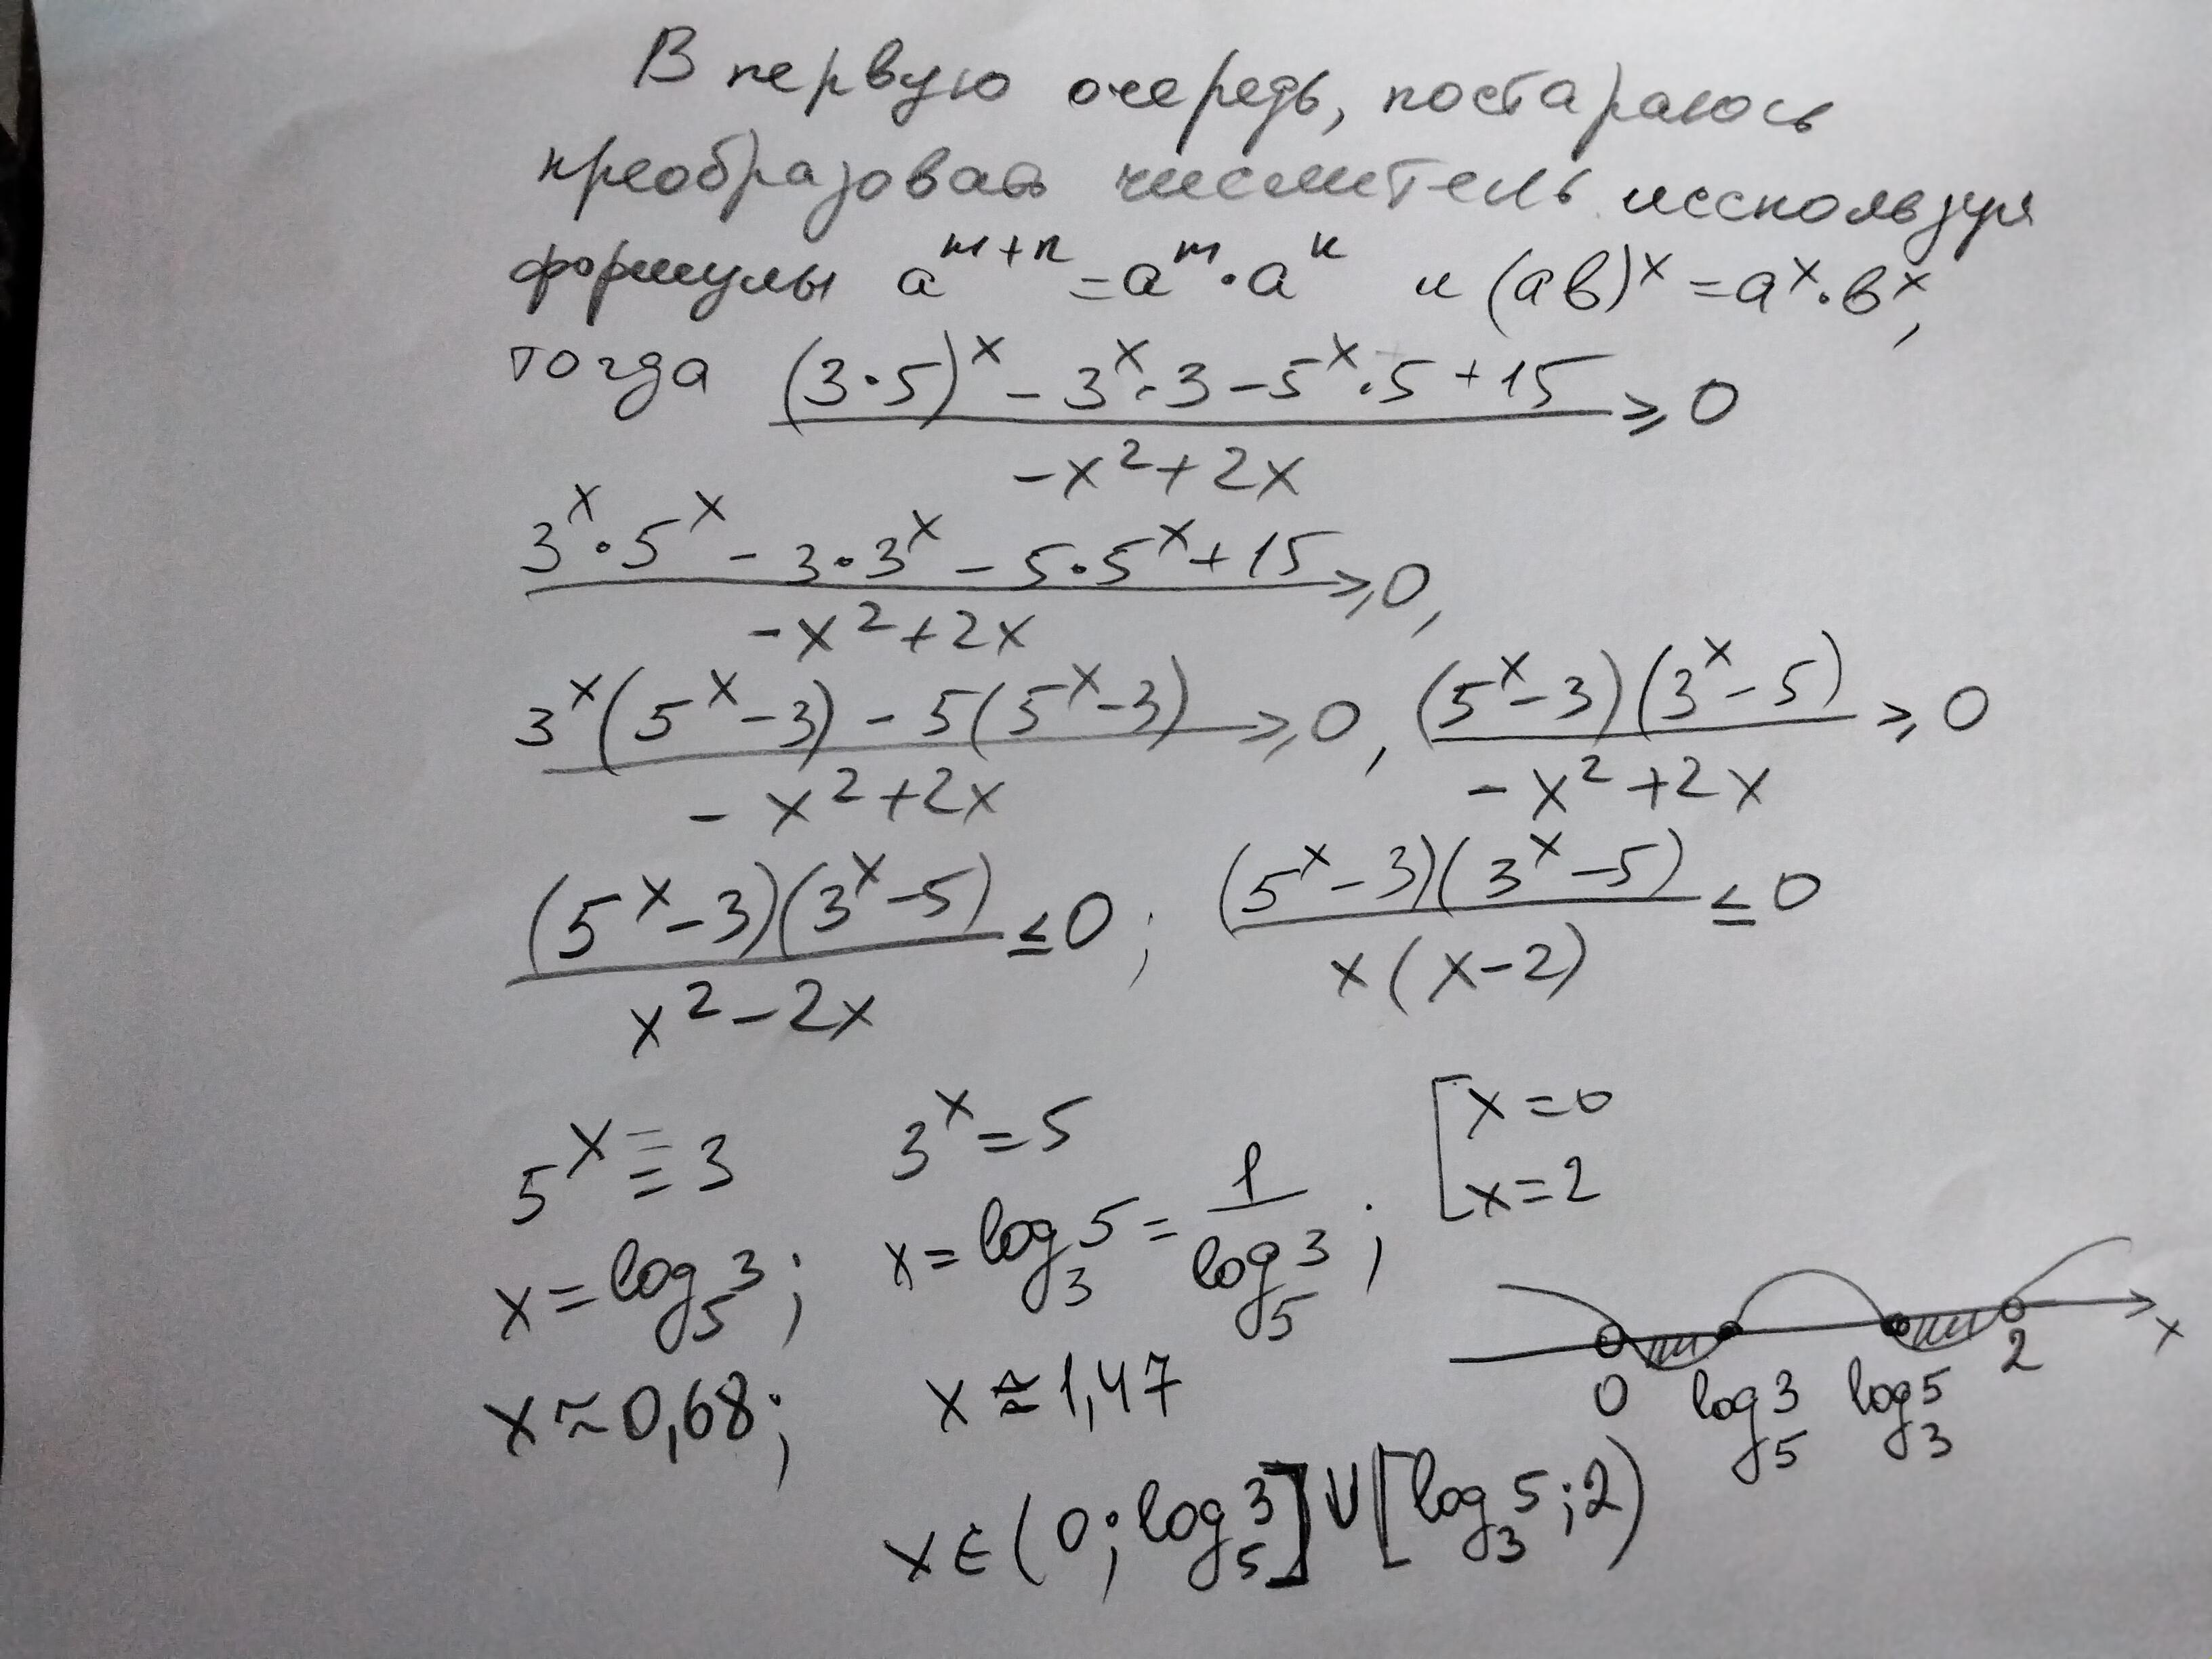 В первую очередь, постараюсь
преобразовать числитель исспользуя
формулы a^{m+n} = a^m · a^n и (ab)^x = a^x · b^x,
тогда \frac{(3·5)^x - 3^x·3 - 5^x·5 + 15}{-x^2+2x} ⩾ 0
\frac{3^x·5^x - 3·3^x - 5·5^x + 15}{-x^2+2x} ⩾ 0,
\frac{3^x(5^x-3) - 5(5^x-3)}{-x^2+2x} ⩾ 0, \frac{(5^x-3)(3^x-5)}{-x^2+2x} ⩾ 0
\frac{(5^x-3)(3^x-5)}{x^2-2x} ≤ 0; \frac{(5^x-3)(3^x-5)}{x(x-2)} ≤ 0
5^x = 3 3^x = 5 [x=0
x=2
x = log_5 3; x = log_3 5 = \frac{1}{log_5 3};
x ≈ 0,68; x ≈ 1,47
0 log_5 3 log_3 5 2 x
x ∈ (0; log_5 3] ∪ [log_3 5; 2)